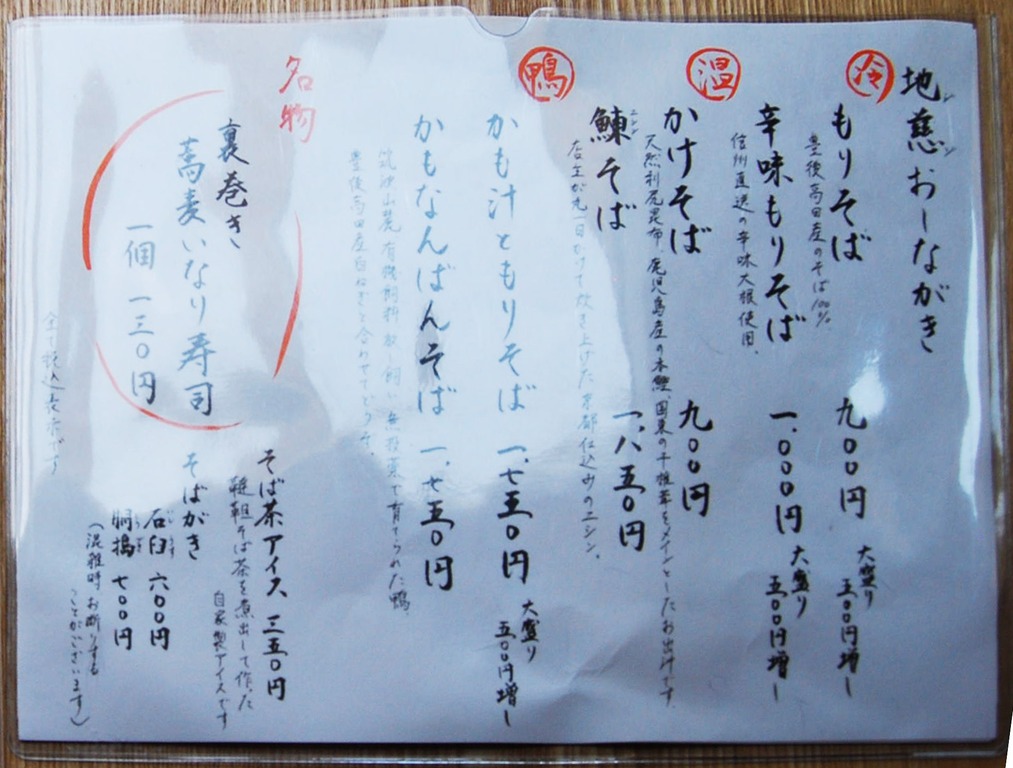 地慈おしながき
ジジ
冷
もりそば 九〇〇円 大盛り 五〇〇円増し
豊後高田産のそば100%
辛味もりそば 一、〇〇〇円 大盛り 五〇〇円増し
信州直送の辛味大根使用。
温
かけそば 九〇〇円
天然利尻昆布、鹿児島産の本鰹、国東の干椎茸をメインとしたお出汁です。
鰊そば 一、八五〇円
ニシン
店主が丸一日かけて炊き上げた京都仕込みのニシン。
鴨
かも汁ともりそば 一、七五〇円 大盛り 五〇〇円増し
かもなんばんそば 一、七五〇円
筑波山麓有機飼料 飼い 無投薬で育てられた鴨。
豊後高田産白ねぎと合わせてどうぞ。
名物
裏巻き
蕎麦いなり寿司
一個 一三〇円
そば茶アイス 三五〇円
韃靼そば茶を煮出して作った
自家製アイスです
そばがき
石臼 六〇〇円
胴搗 七〇〇円
(混雑時お断りする
ことがございます)
全て税込表示です